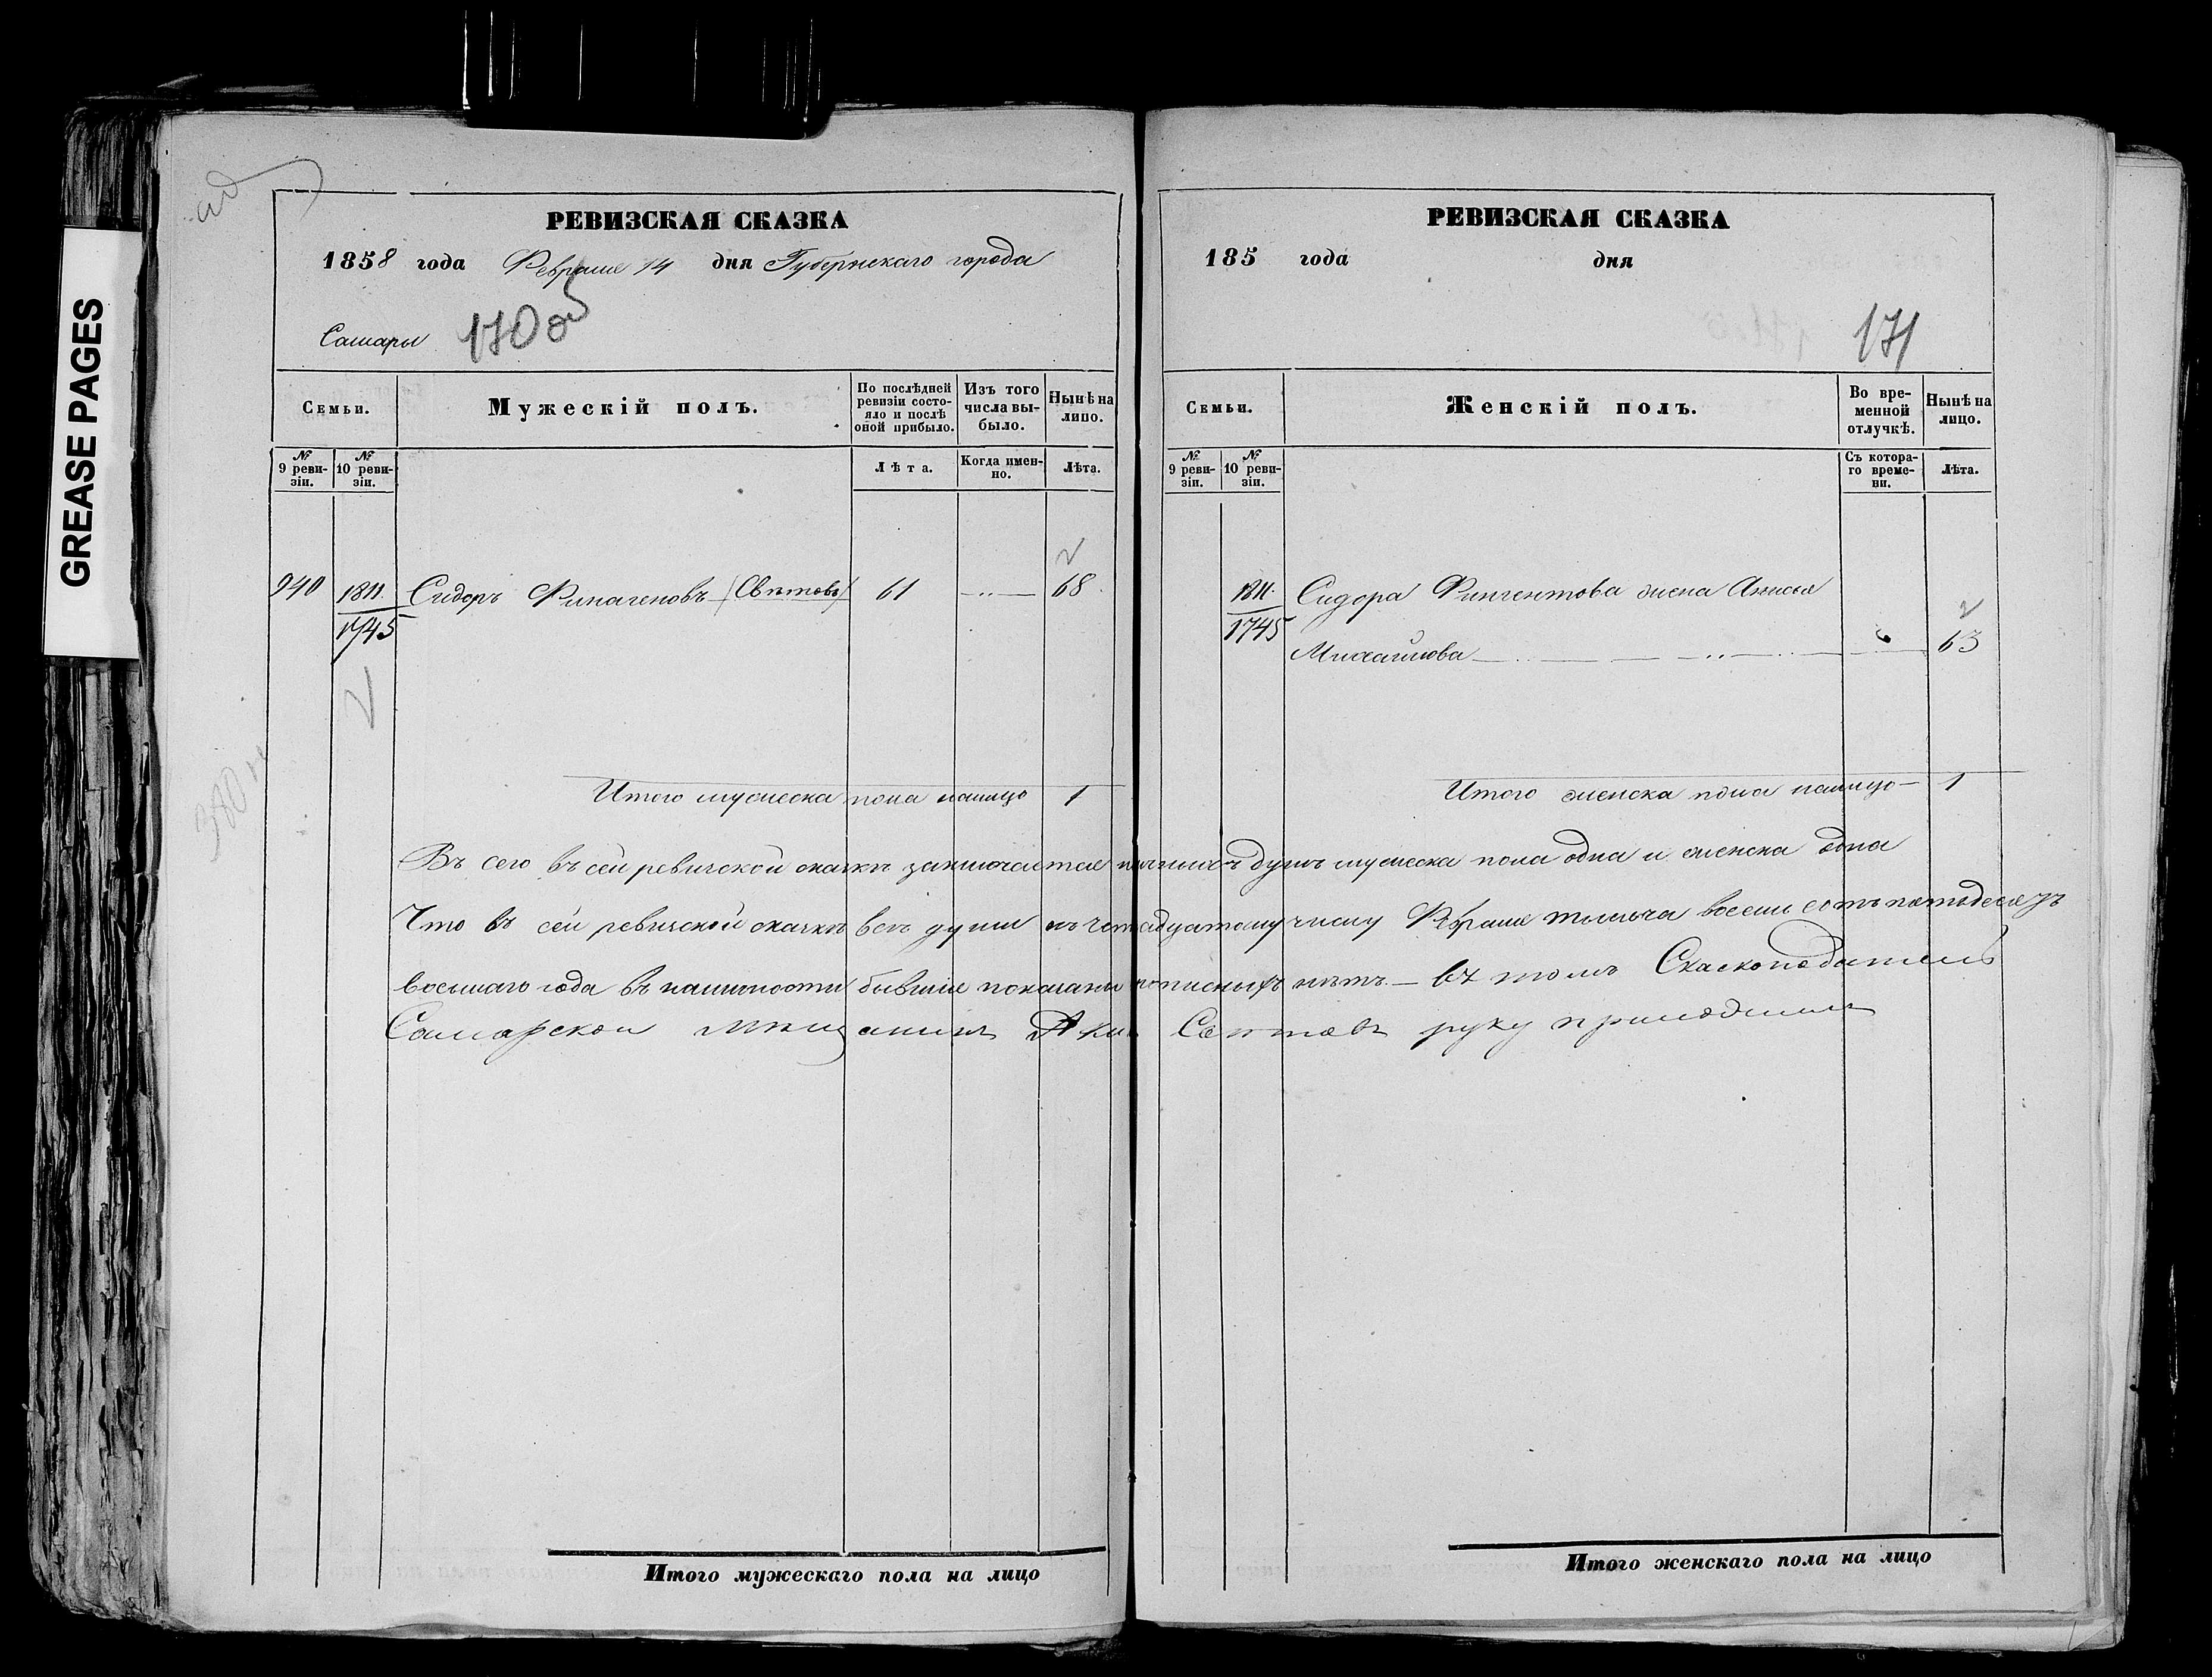 GREASE PAGES
РЕВИЗСКАЯ СКАЗКА
1858 года Февраля 14 дня Губернскаго города
Самары 170 об
Семьи.
Мужескій полъ.
По послѣдней ревизіи состо-
яло и послѣ
оной прибыло.
Изъ того
числа вы-
было.
Нынѣ на
лицо.
№ 9 реви-
зіи.
№ 10 реви-
зіи.
Лѣта.
Когда имен-
но.
Лѣта.
940 1811. Сидоръ (Свѣтовъ) 61 68
1745
Итого мужеска пола налицо 1
РЕВИЗСКАЯ СКАЗКА
185 года дня
171
Семьи.
Женскій полъ.
Во вре-
менной
отлучкѣ.
Нынѣ на
лицо.
№ 9 реви-
зіи.
№ 10 реви-
зіи.
Съ котора-
го време-
ни.
Лѣта.
1811. Сидора жена
1745 Михайлова 63
Итого женска пола налицо 1
Въ сей ревизской сказкѣ заключается душъ мужеска пола одна и женска одна
Что въ сей ревизской сказкѣ всѣ души къ числу Февраля тысяча восемь сотъ пятьдесятъ
восьмаго года въ наличности бывшія показаны прописныхъ нѣтъ. въ томъ Сказкоподатель
Самарской мѣщанинъ руку приложилъ
Итого мужескаго пола на лицо
Итого женскаго пола на лицо